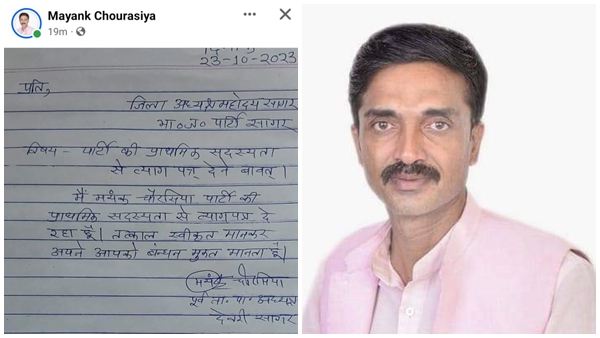 Mayank Chourasiya
19m
दिनांक
23-10-2023
प्रति,
जिला अध्यक्ष महोदय सागर
भा०ज० पार्टी सागर
विषय - पार्टी की प्राथमिक सदस्यता
से त्याग पत्र देने बावत् ।
मैं मयंक चौरसिया पार्टी की
प्राथमिक सदस्यता से त्यागपत्र दे
रहा हूँ। तत्काल स्वीकृत मानकर
अपने आपको बंन्धन मुक्त मानता हूँ।
मयंक चौरसिया
पूर्व न. पा. अध्यक्ष
देवरी सागर